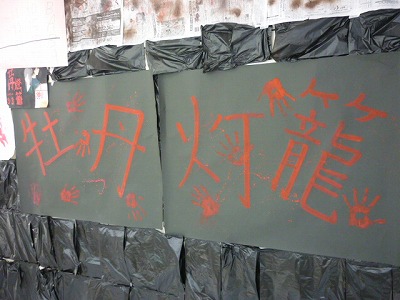 牡丹灯籠